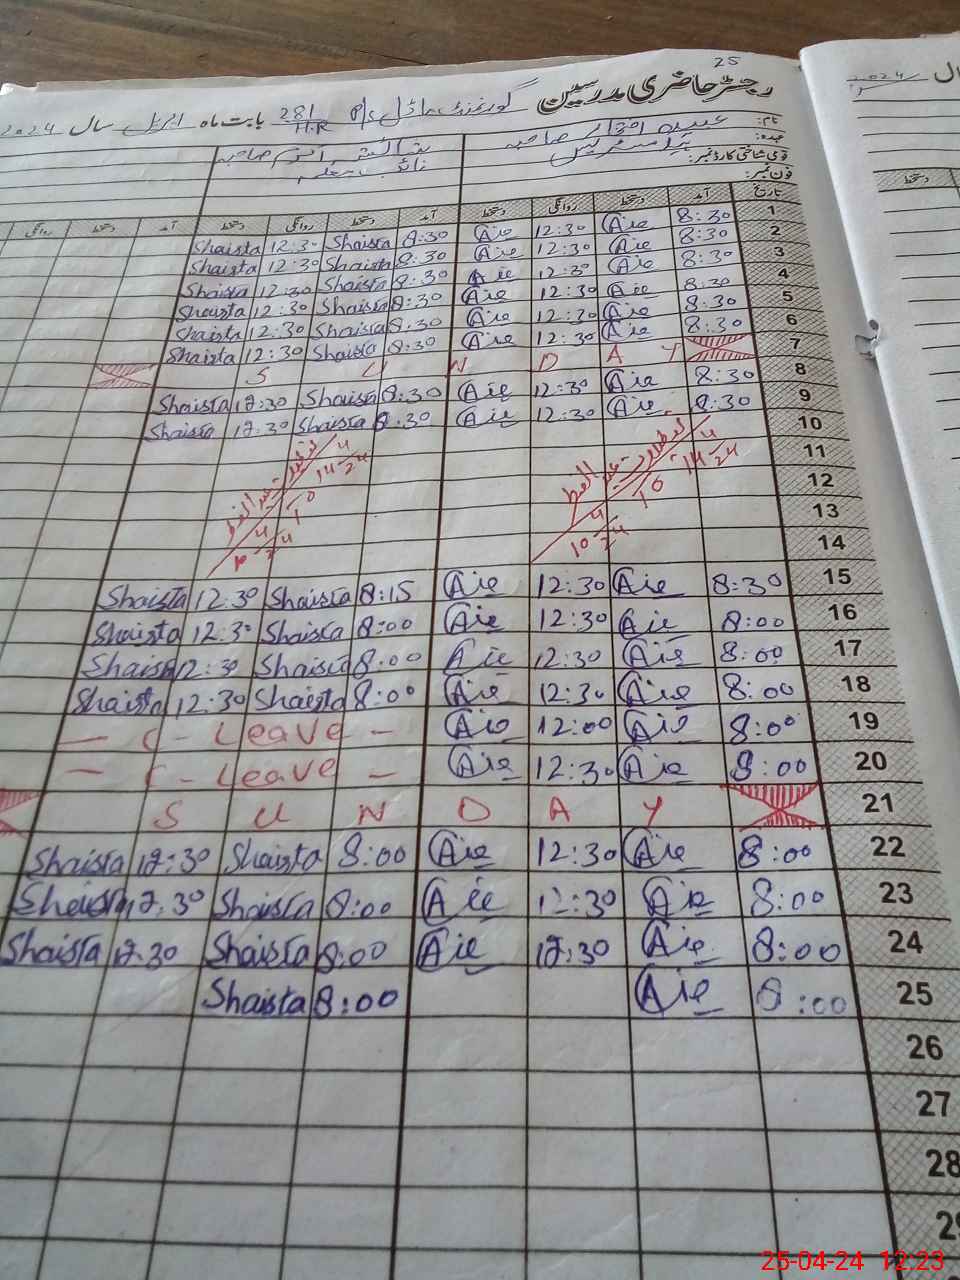 25
رجسٹر حاضری مدرسین گورنمنٹ ماڈل P/S 281/H.R بابت ماہ اپریل سال 2024
نام: صاحبہ
عہدہ:
قومی شناختی کارڈ نمبر:
فون نمبر:
تاریخ آمد دستخط روانگی دستخط آمد دستخط روانگی دستخط آمد دستخط روانگی
1 8:30 Aie 12:30 Aie 8:30 Shaista 12:30 Shaista
2 8:30 Aie 12:30 Aie 8:30 Shaista 12:30 Shaista
3 8:30 Aie 12:30 Aie 8:30 Shaista 12:30 Shaista
4 8:30 Aie 12:30 Aie 8:30 Shaista 12:30 Shaista
5 8:30 Aie 12:30 Aie 8:30 Shaista 12:30 Shaista
6 8:30 Aie 12:30 Aie 8:30 Shaista 12:30 Shaista
7 S U N D A Y
8 8:30 Aie 12:30 Aie 8:30 Shaista 12:30 Shaista
9 8:30 Aie 12:30 Aie 8:30 Shaista 12:30 Shaista
10
11
12
13
14
تعطیلات عید الفطر
10 4/24 تا 14 4/24
تعطیلات عید الفطر
10 4/24 تا 14 4/24
15 8:30 Aie 12:30 Aie 8:15 Shaista 12:30 Shaista
16 8:00 Aie 12:30 Aie 8:00 Shaista 12:30 Shaista
17 8:00 Aie 12:30 Aie 8:00 Shaista 12:30 Shaista
18 8:00 Aie 12:30 Aie 8:00 Shaista 12:30 Shaista
19 8:00 Aie 12:00 Aie — C - Leave -
20 8:00 Aie 12:30 Aie — C - Leave -
21 S U N D A Y
22 8:00 Aie 12:30 Aie 8:00 Shaista 12:30 Shaista
23 8:00 Aie 12:30 Aie 8:00 Shaista 12:30 Shaista
24 8:00 Aie 12:30 Aie 8:00 Shaista 12:30 Shaista
25 8:00 Aie 8:00 Shaista
26
27
28
29
25-04-24 12:23